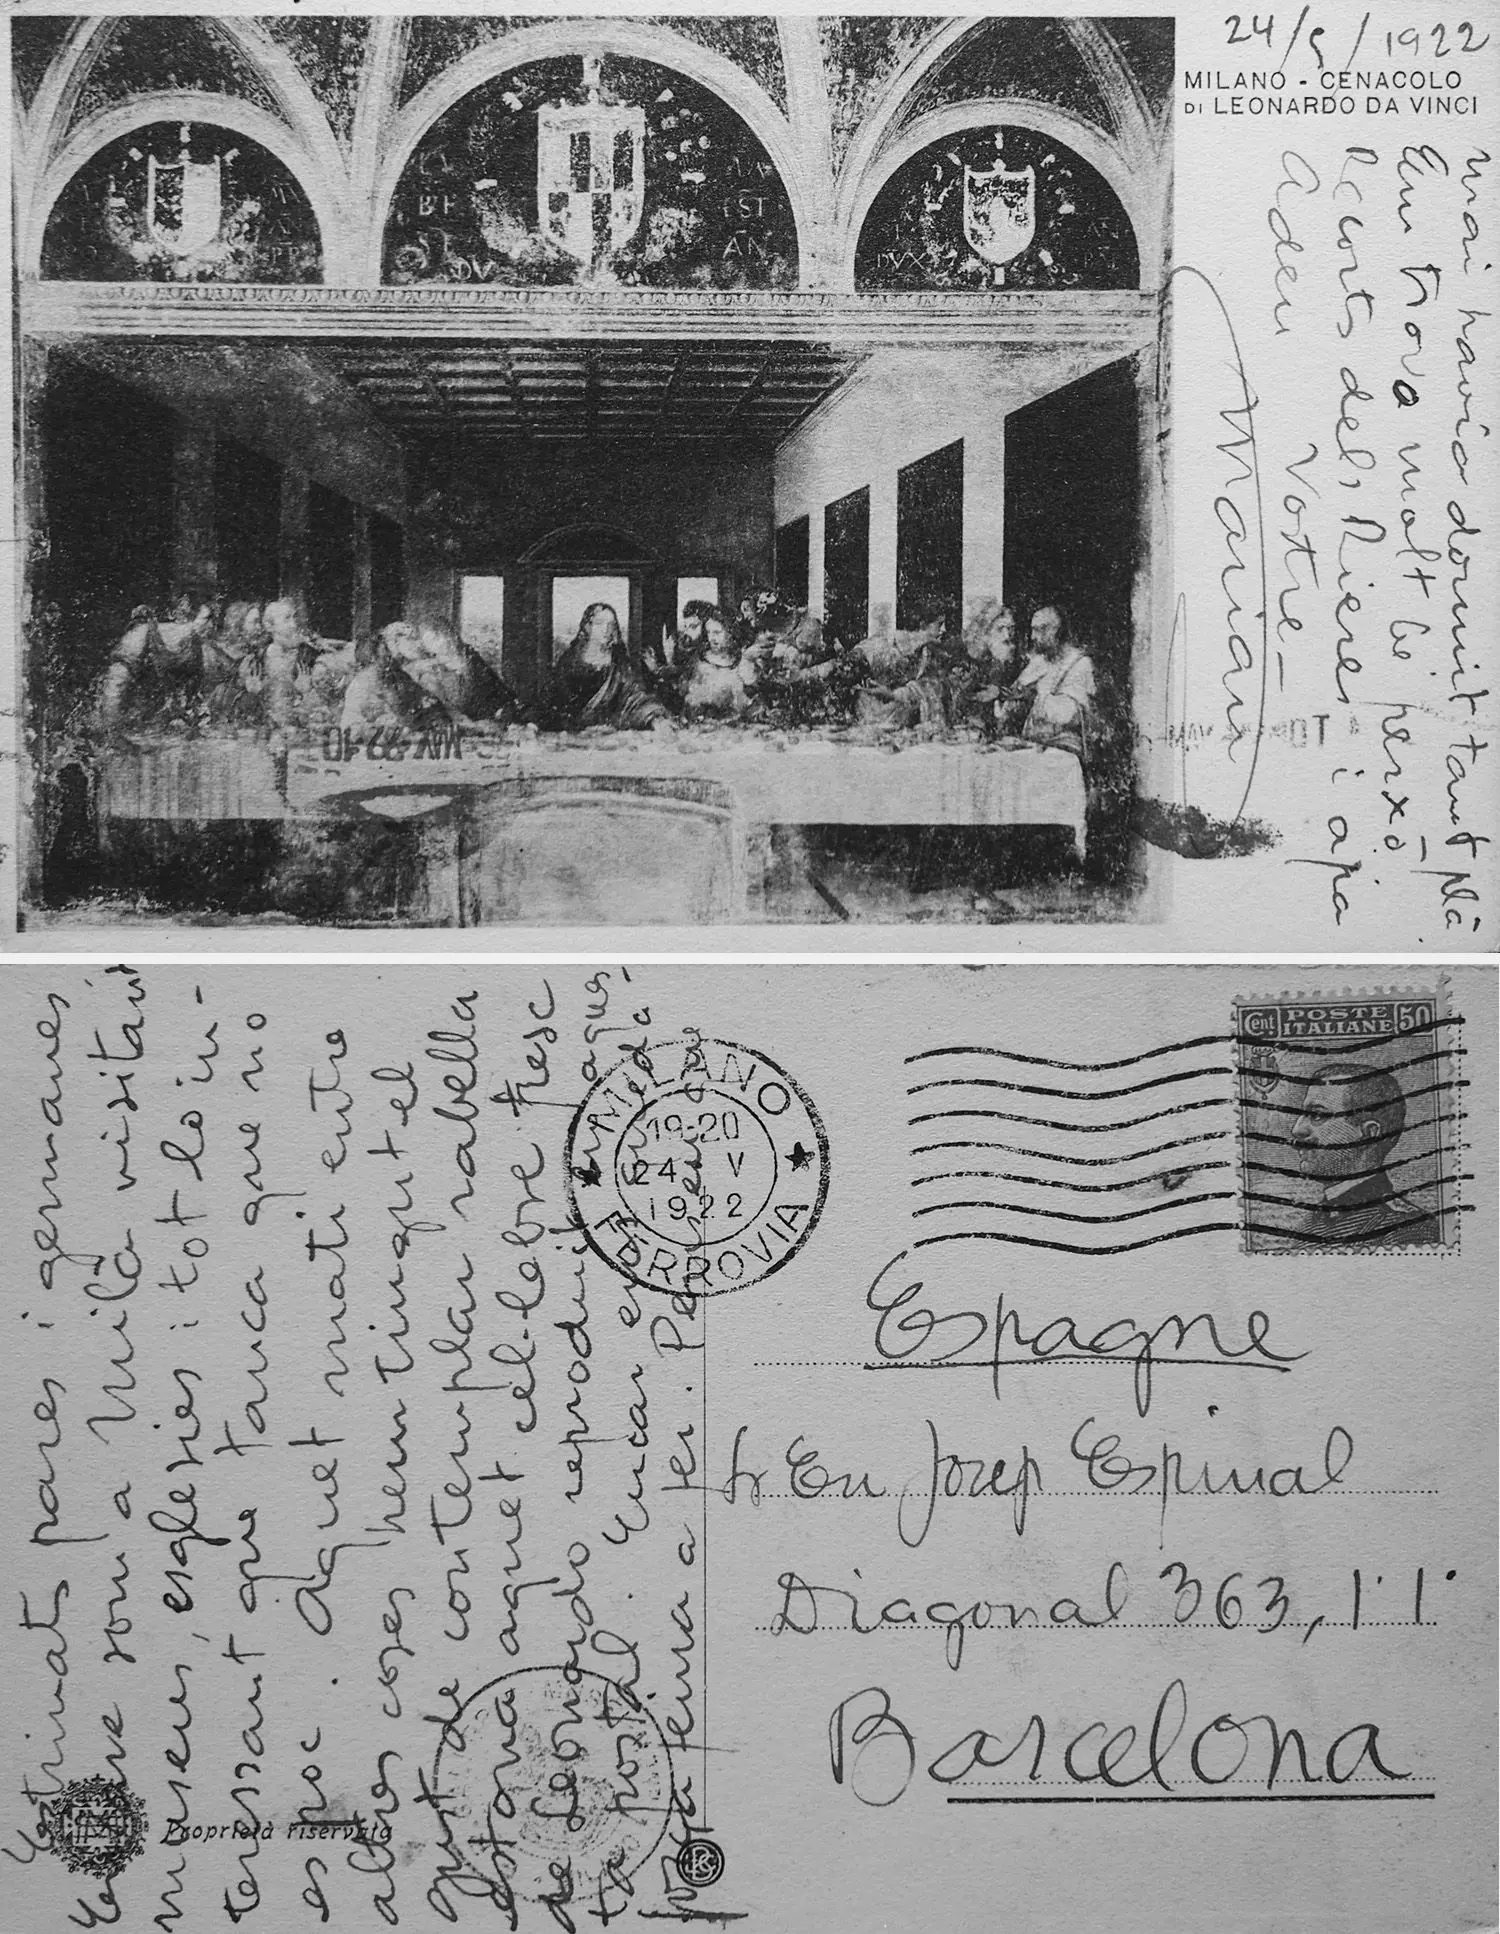 24/5/1922
MILANO - CENACOLO
DI LEONARDO DA VINCI
mai havia dormit tant plà
Em trovo molt bé perxò.
Records dels Rieres i a pia
Adeu Vostre-
Marian
Estimats pares i germanes
Encare som a Milà visitant
museus, esglesies i tot lo in-
teressant que tanca que no
es poc. Aquet matí entre
altres coses hem tingut el
gust de contemplar rabella
estona aquet cel·lebre fresc
de Leonardo reproduit en aques-
ta postal. Encar em queda
ja feina a fer. Per
Proprietà riservata
MILANO
19-20
24 V
1922
FERROVIA
Cent POSTE ITALIANE 50
Espagne
Sr En Josep Espinal
Diagonal 363, 1·1·
Barcelona